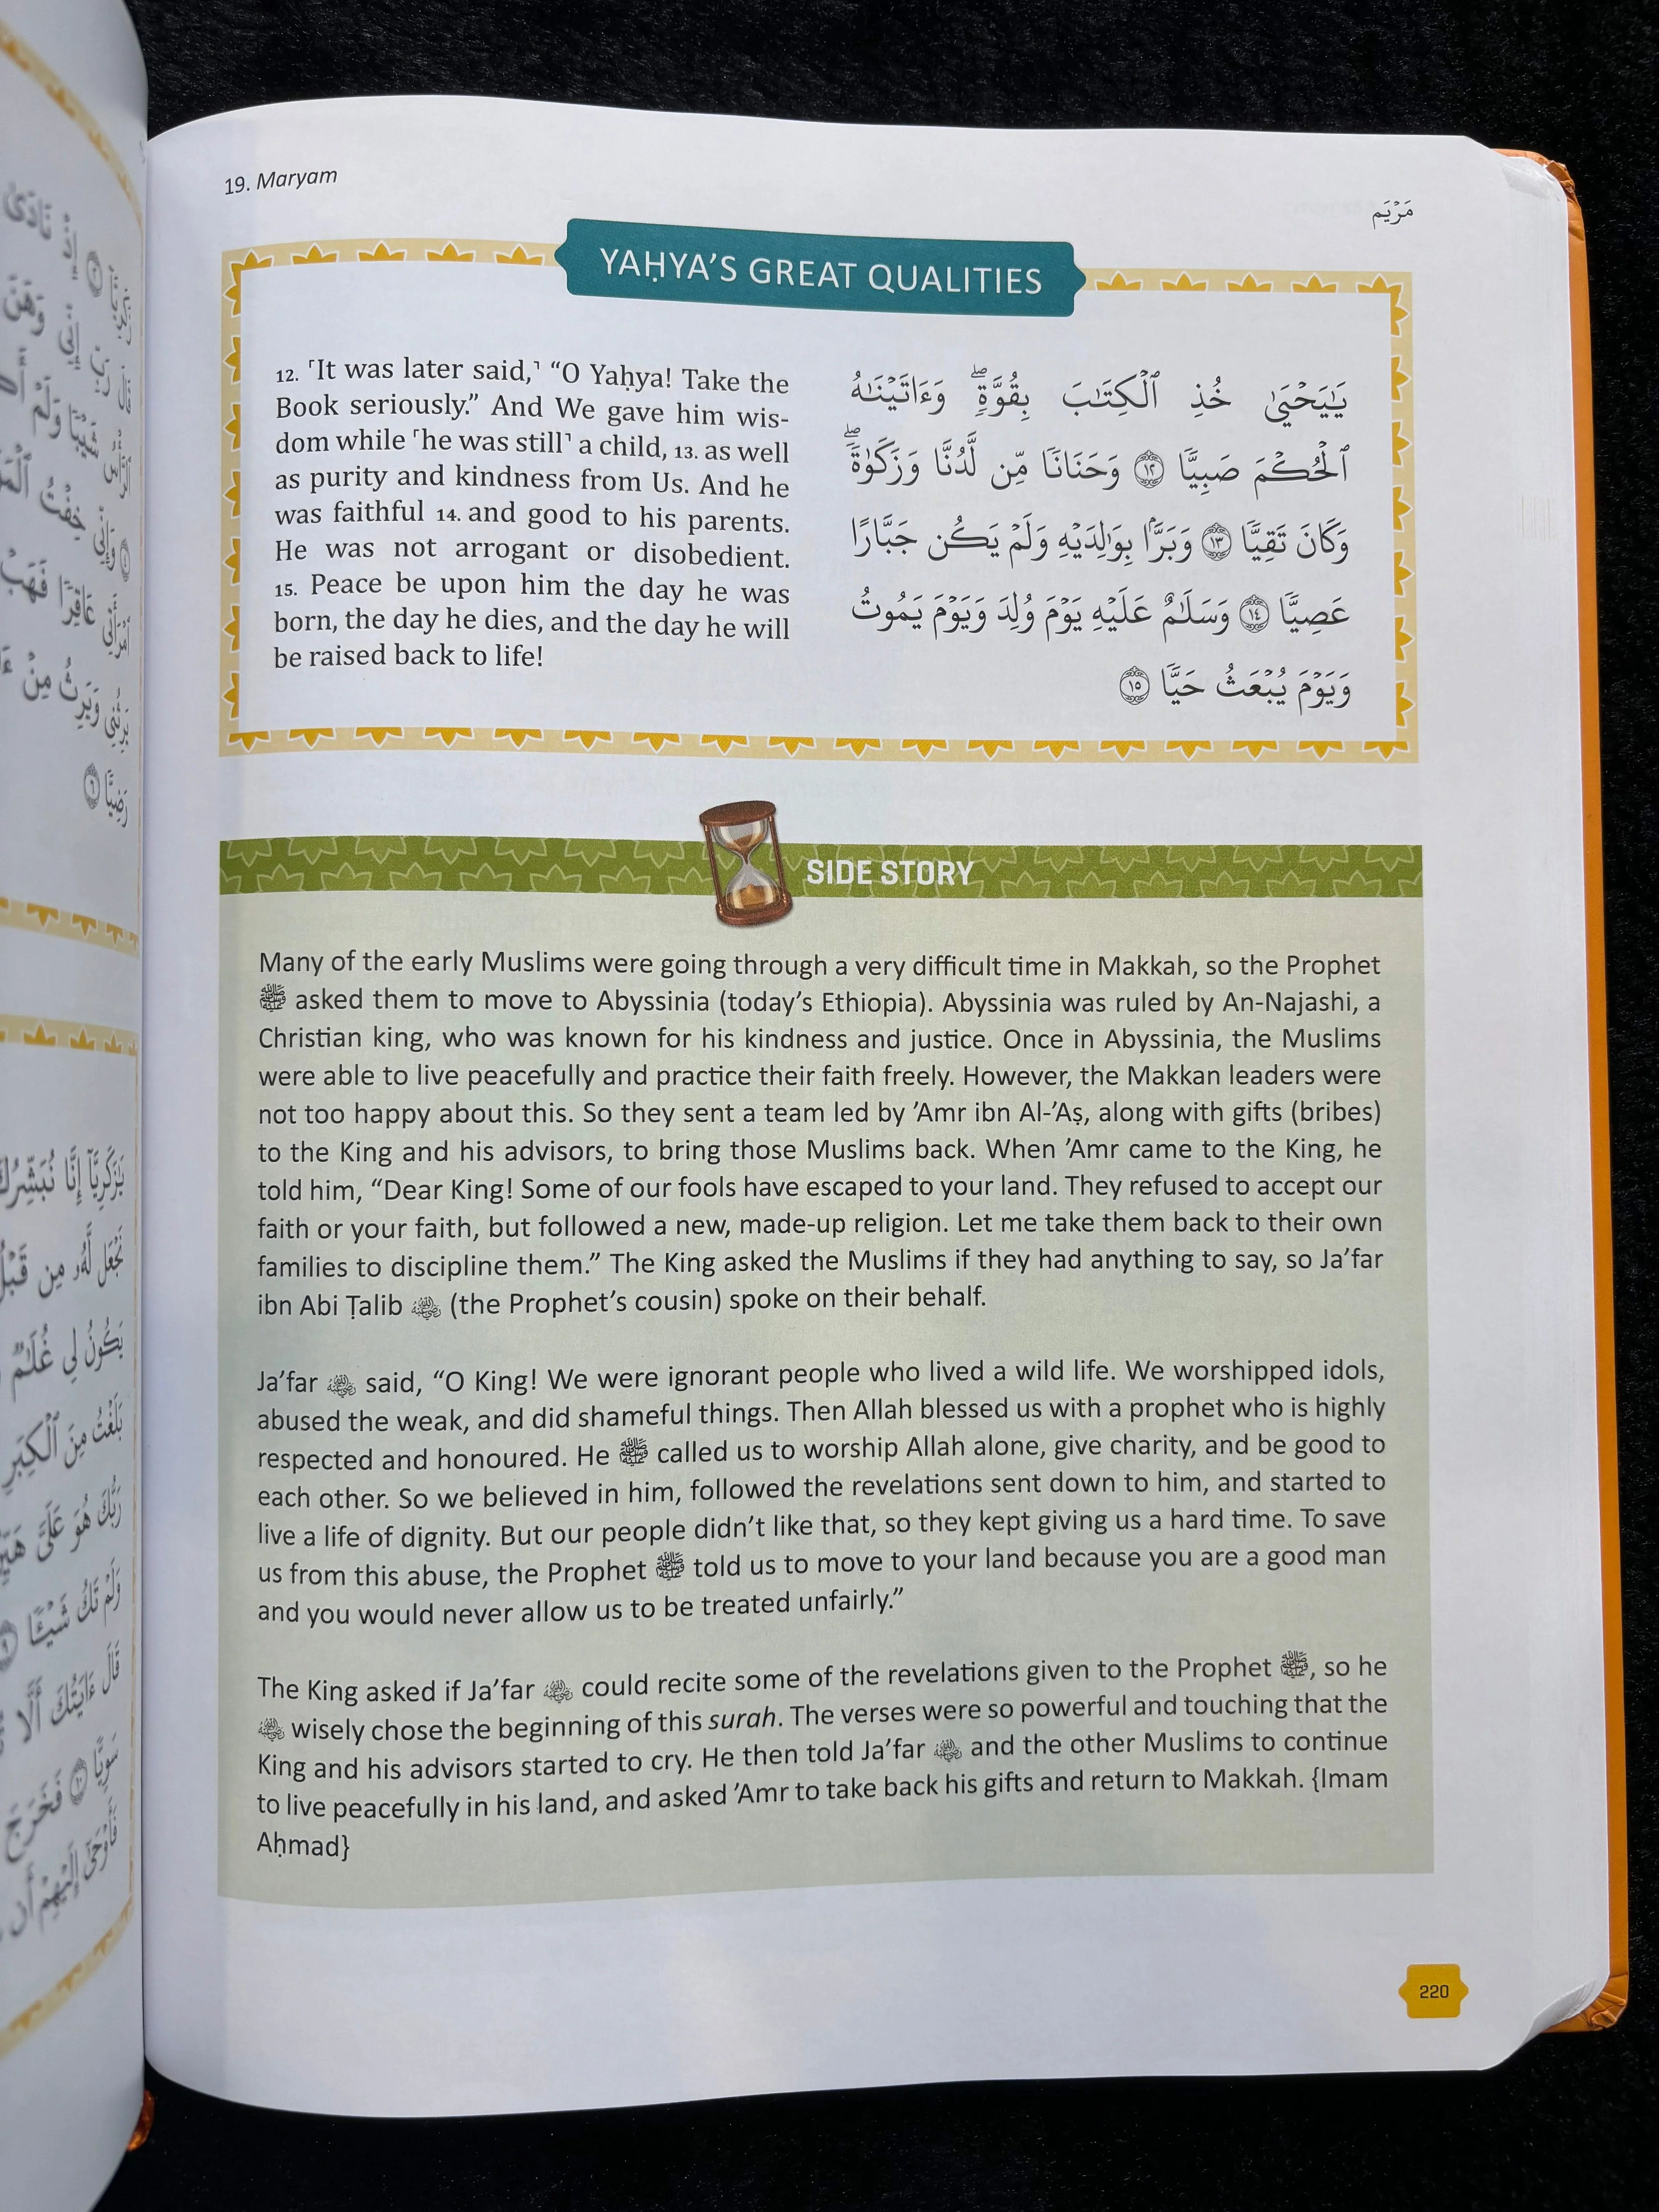 19. Maryam
مَرْيَم
YAḤYA’S GREAT QUALITIES
12. ⸢It was later said,⸣ “O Yaḥya! Take the
Book seriously.” And We gave him wis-
dom while ⸢he was still⸣ a child, 13. as well
as purity and kindness from Us. And he
was faithful 14. and good to his parents.
He was not arrogant or disobedient.
15. Peace be upon him the day he was
born, the day he dies, and the day he will
be raised back to life!
يَـٰيَحْيَىٰ خُذِ ٱلْكِتَـٰبَ بِقُوَّةٍۖ وَءَاتَيْنَـٰهُ
ٱلْحُكْمَ صَبِيًّا ١٢ وَحَنَانًا مِّن لَّدُنَّا وَزَكَوٰةًۖ
وَكَانَ تَقِيًّا ١٣ وَبَرًّۢا بِوَٰلِدَيْهِ وَلَمْ يَكُن جَبَّارًا
عَصِيًّا ١٤ وَسَلَـٰمٌ عَلَيْهِ يَوْمَ وُلِدَ وَيَوْمَ يَمُوتُ
وَيَوْمَ يُبْعَثُ حَيًّا ١٥
SIDE STORY
Many of the early Muslims were going through a very difficult time in Makkah, so the Prophet
ﷺ asked them to move to Abyssinia (today’s Ethiopia). Abyssinia was ruled by An-Najashi, a
Christian king, who was known for his kindness and justice. Once in Abyssinia, the Muslims
were able to live peacefully and practice their faith freely. However, the Makkan leaders were
not too happy about this. So they sent a team led by ’Amr ibn Al-’Aṣ, along with gifts (bribes)
to the King and his advisors, to bring those Muslims back. When ’Amr came to the King, he
told him, “Dear King! Some of our fools have escaped to your land. They refused to accept our
faith or your faith, but followed a new, made-up religion. Let me take them back to their own
families to discipline them.” The King asked the Muslims if they had anything to say, so Ja’far
ibn Abi Ṭalib رضي الله عنه (the Prophet’s cousin) spoke on their behalf.
Ja’far رضي الله عنه said, “O King! We were ignorant people who lived a wild life. We worshipped idols,
abused the weak, and did shameful things. Then Allah blessed us with a prophet who is highly
respected and honoured. He ﷺ called us to worship Allah alone, give charity, and be good to
each other. So we believed in him, followed the revelations sent down to him, and started to
live a life of dignity. But our people didn’t like that, so they kept giving us a hard time. To save
us from this abuse, the Prophet ﷺ told us to move to your land because you are a good man
and you would never allow us to be treated unfairly.”
The King asked if Ja’far رضي الله عنه could recite some of the revelations given to the Prophet ﷺ, so he
رضي الله عنه wisely chose the beginning of this surah. The verses were so powerful and touching that the
King and his advisors started to cry. He then told Ja’far رضي الله عنه and the other Muslims to continue
to live peacefully in his land, and asked ’Amr to take back his gifts and return to Makkah. {Imam
Aḥmad}
220